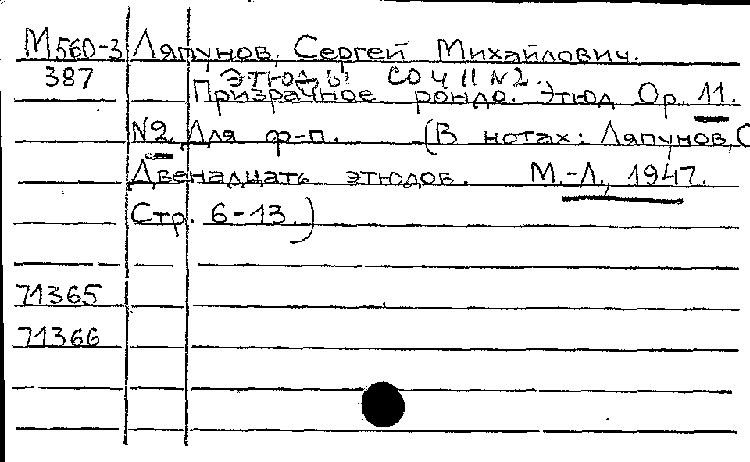 М560-3 Ляпунов, Сергей Михайлович.
387 ЭТЮДЫ СОЧ 11 N2.
Призрачное рондо. Этюд Op. 11.
N2. Для ф-п. (В нотах: Ляпунов, С
Двенадцать этюдов. М.-Л., 1947.
Стр. 6-13.)
71365
71366